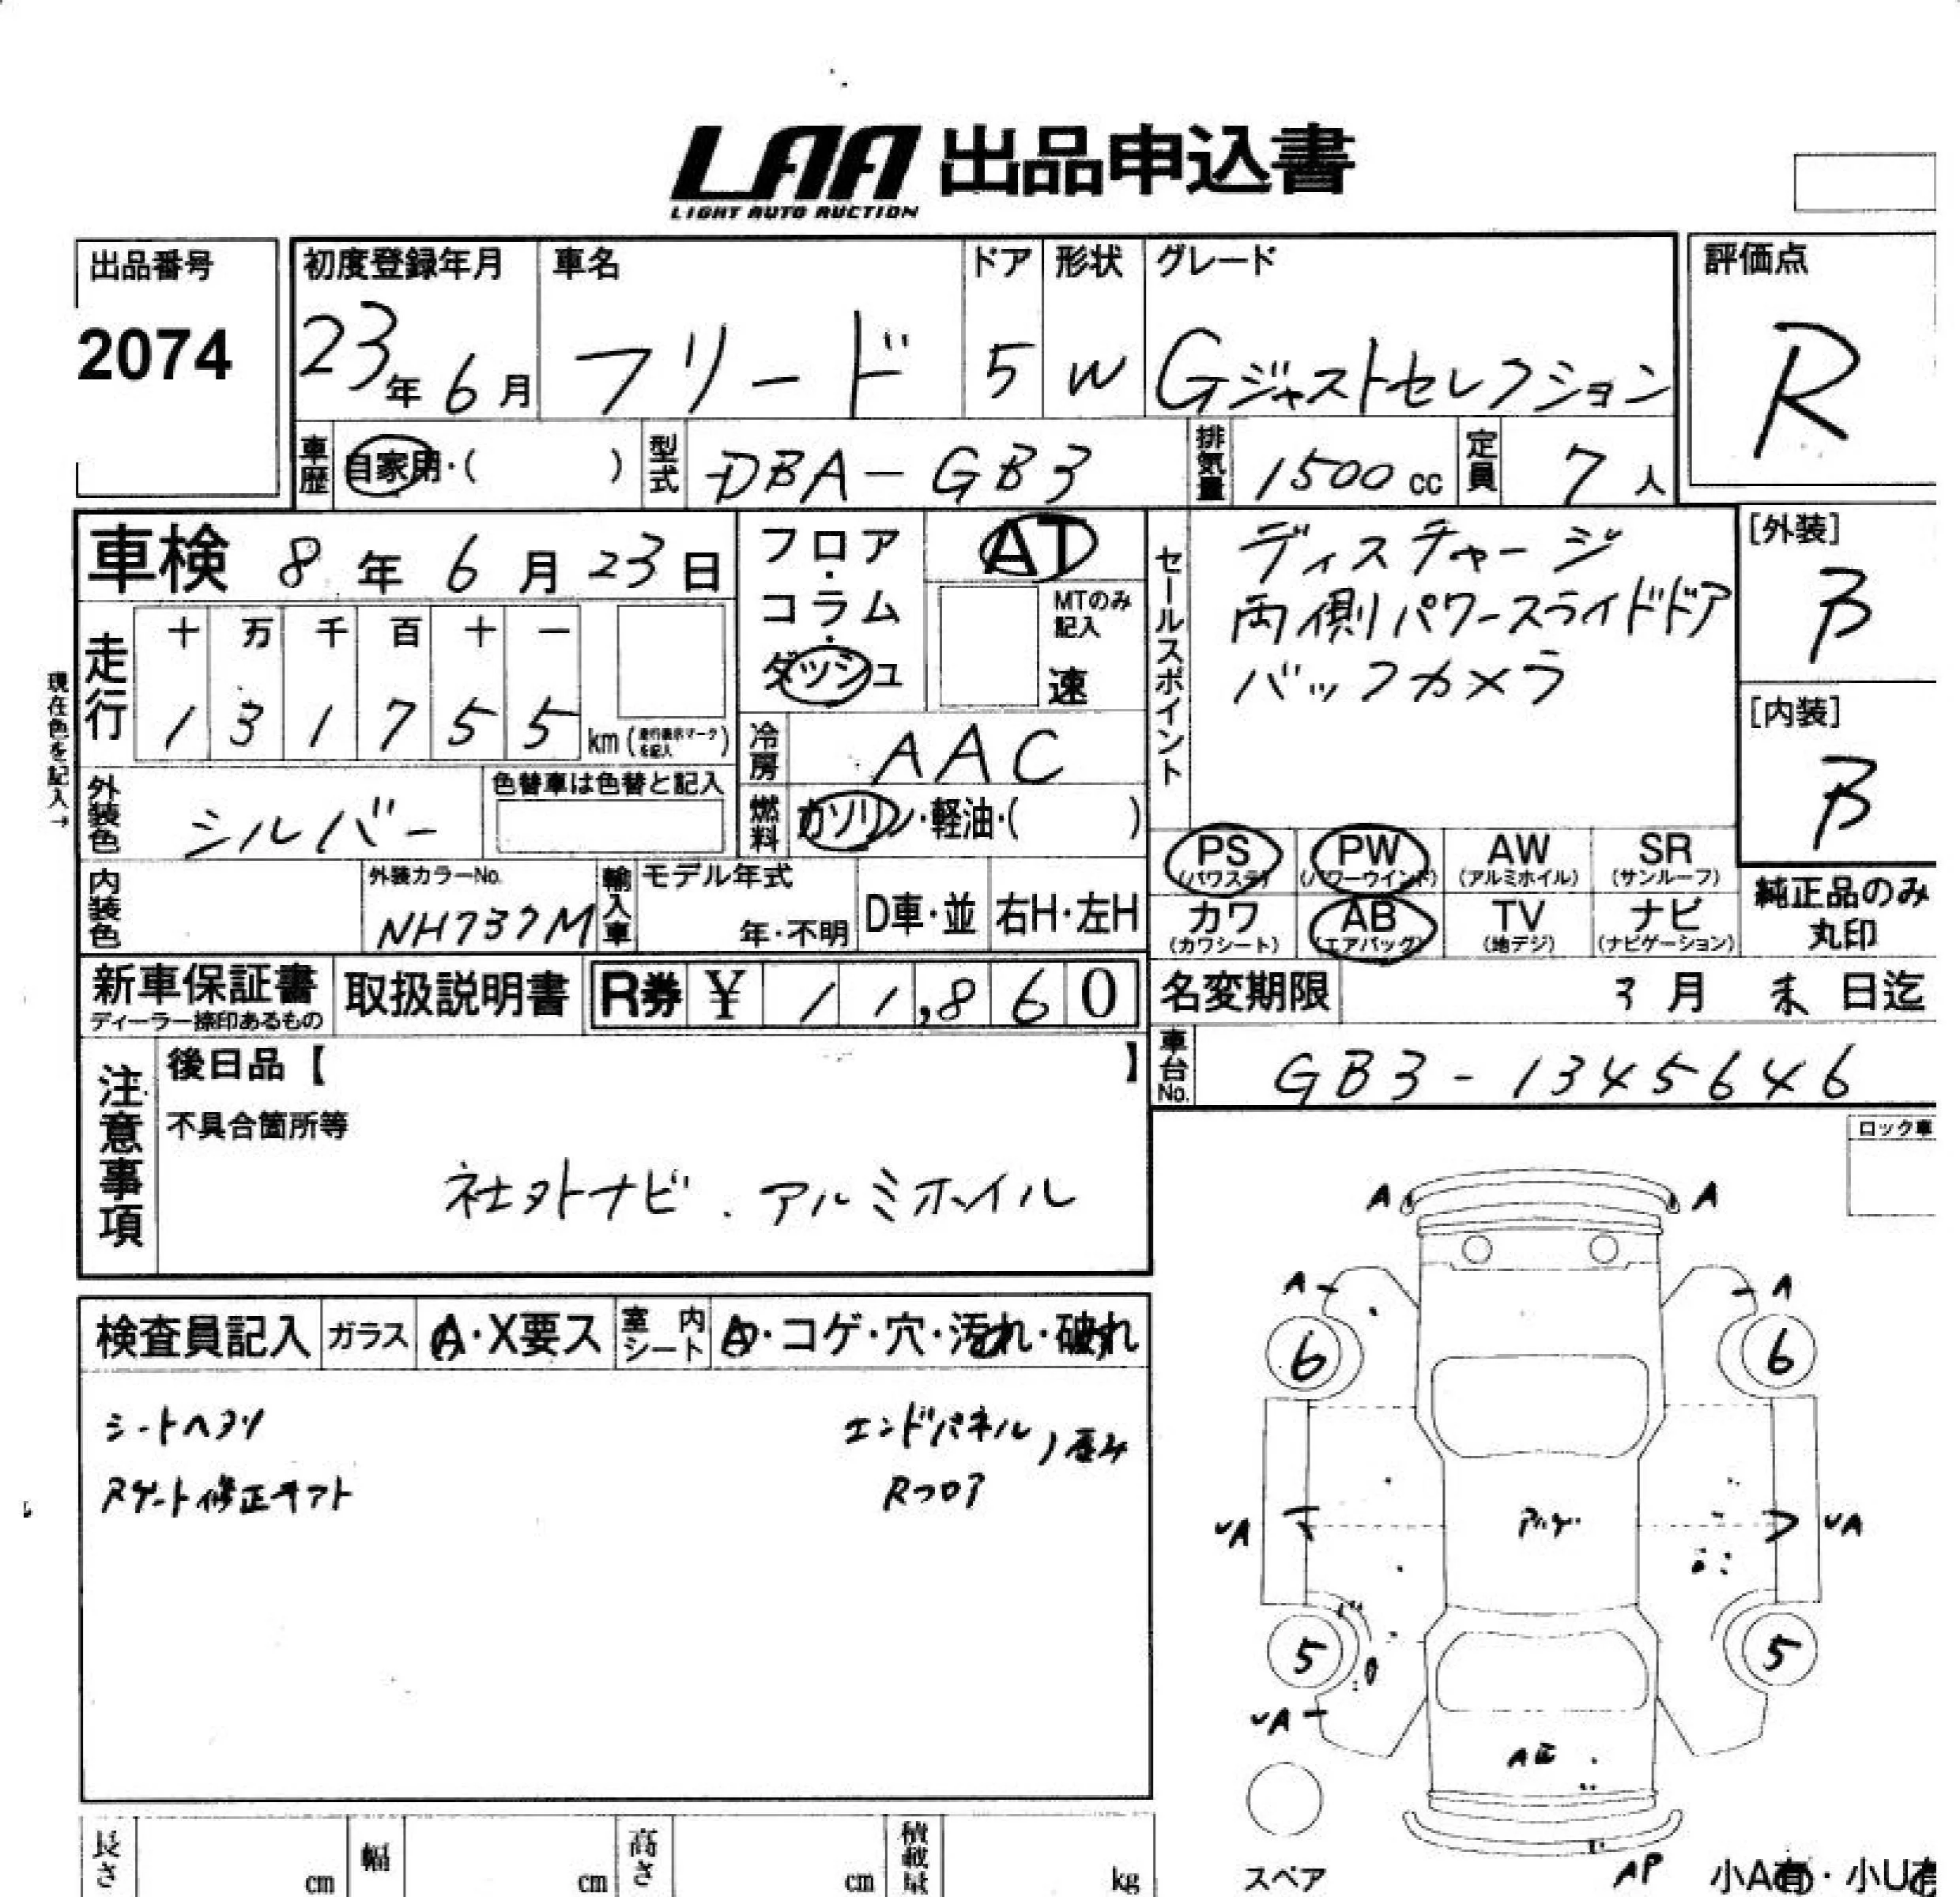 LAA 出品申込書
LIGHT AUTO AUCTION
出品番号
2074
初度登録年月
23年 6月
車名
フリード
ドア
5
形状
W
グレード
Gジャストセレクション
評価点
R
車歴
自家用・( )
型式
DBA-GB3
排気量
1500 cc
定員
7 人
車検 8 年 6 月 23 日
フロア・コラム・ダッシュ
AT
MTのみ記入
速
セールスポイント
ディスチャージ
両側パワースライドドア
バックカメラ
[外装]
B
[内装]
B
現在色を記入→
走行
十 万 千 百 十 一
1 3 1 7 5 5 km (走行表示マークを記入)
冷房
AAC
外装色
シルバー
色替車は色替と記入
燃料
ガソリン・軽油・( )
PS (パワステ)
PW (パワーウインド)
AW (アルミホイル)
SR (サンルーフ)
カワ (カワシート)
AB (エアバッグ)
TV (地デジ)
ナビ (ナビゲーション)
純正品のみ
丸印
内装色
外装カラーNo.
NH737M
輸入車
モデル年式
年・不明
D車・並
右H・左H
新車保証書
ディーラー捺印あるもの
取扱説明書
R券 ¥ 11,860
名変期限 3 月 末 日迄
車台No.
GB3-1345646
注意事項
後日品【 】
不具合箇所等
社外ナビ . アルミホイル
ロック車
検査員記入
ガラス
A・X要ス
室内シート
A・コゲ・穴・汚れ・破れ
シートヘタリ
Rゲート修正キズト
エンドパネル
Rフロア
歪み
A
A
A
A
6
6
UA
UA
5
5
UA
AP
スペア
小A有・小U有
長さ
cm
幅
cm
高さ
cm
積載量
kg